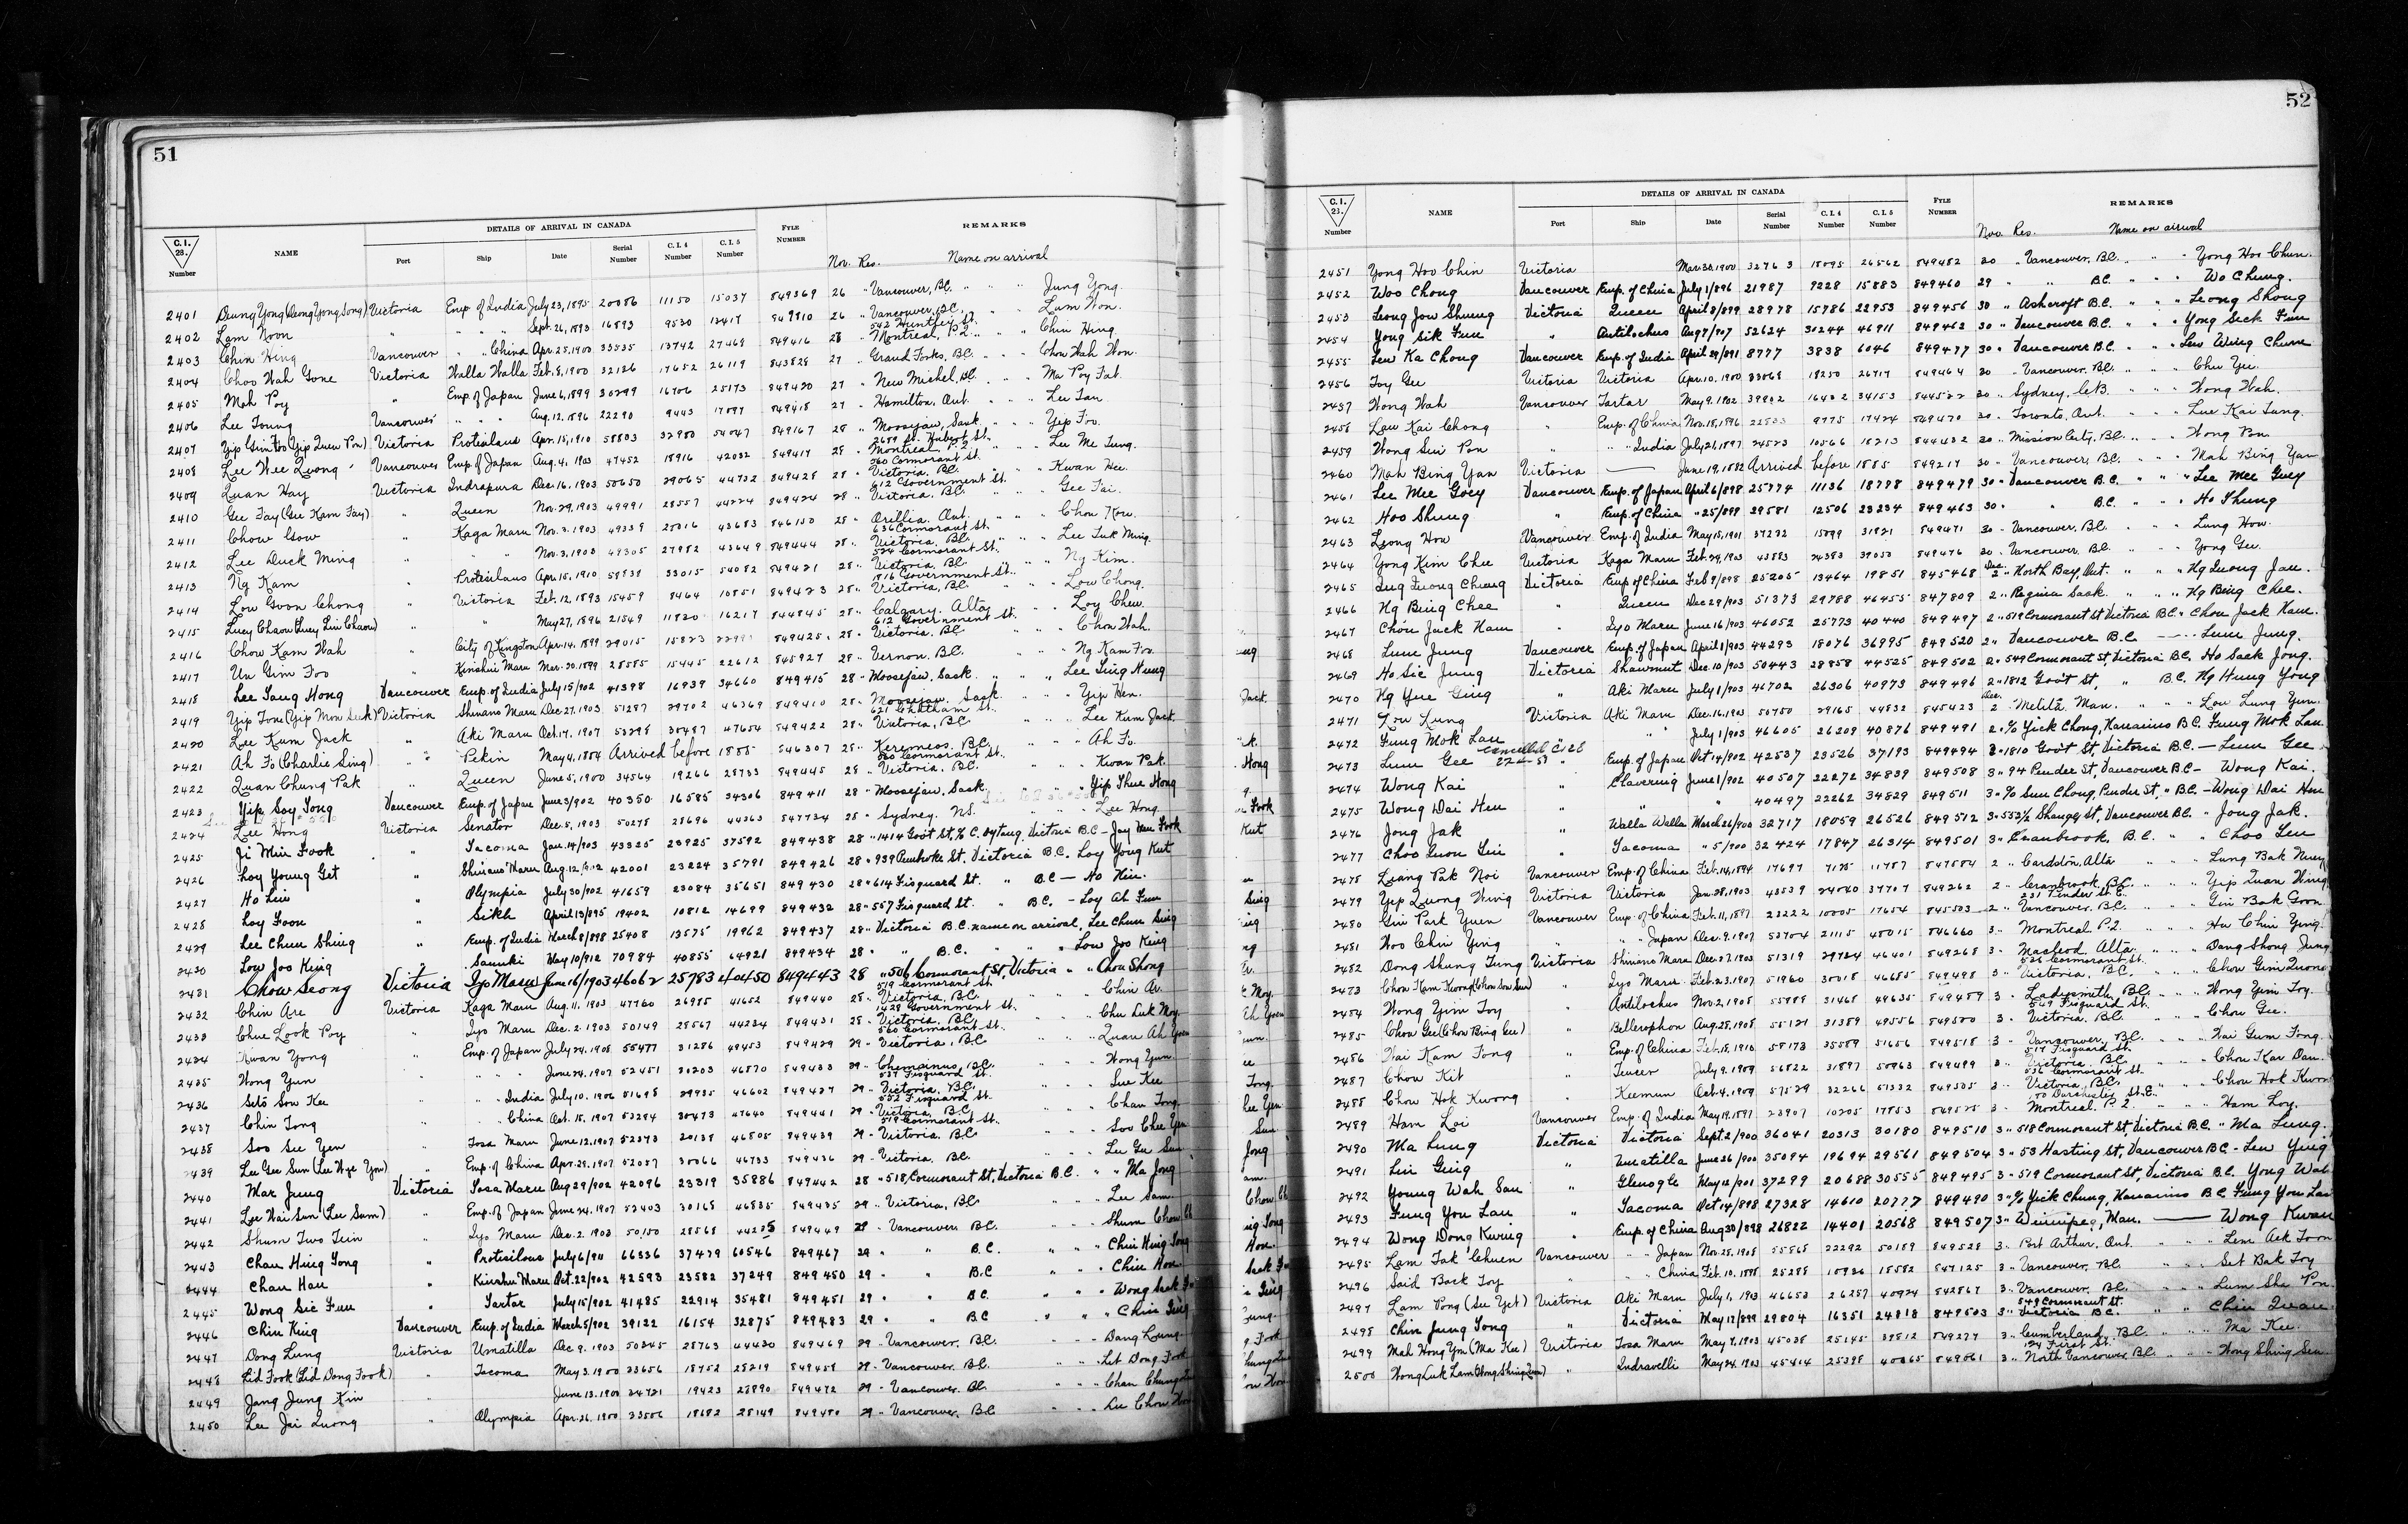 51
DETAILS OF ARRIVAL IN CANADA
C.I. 28. Number NAME Port Ship Date Serial Number C.I.4 Number C.I.5 Number FYLE NUMBER REMARKS
Nov. Res. Name on arrival
2401 Victoria Emp. of India July 23, 1895 20086 11150 15037 849369 26 " Vancouver, B.C. " " " Jung Yong.
2402 Lam Noon " " " " Sept. 26, 1893 16893 9530 13417 26 " Vancouver, B.C. " " Lum Won.
2403 Chin Hing Vancouver " " China Apr. 25, 1900 33535 13742 27469 849416 28 " 542 Huntley St. Montreal, P.Q. " " Chin Hing.
2404 Choo Wah Gone Victoria Walla Walla Feb. 8, 1900 32186 17652 26119 843828 27 " Grand Forks, B.C. " " " Chow Wah Won.
2405 Mah Poy " Emp. of Japan June 6, 1899 30299 16706 25173 849420 27 " New Michel, B.C. " " Ma Poy Fat.
2406 Lee Toung Vancouver " " " Aug. 12, 1896 22290 9443 849418 27 " Hamilton, Ont. " " " Lee Tan.
2407 Victoria Protesilaus Apr. 15, 1910 58803 32980 54047 849167 28 " Moosejaw, Sask. " " " Yip Foo.
2408 Lee Wee Quong Vancouver Emp. of Japan Aug. 4, 1903 47452 18916 42032 849417 28 " 2689 St. Hubert St. Montreal, P.Q. " " " Lee Me Tung.
2409 Quan Hay Victoria Indrapura Dec. 16, 1903 50650 29065 44732 849428 28 " 560 Cormorant St. Victoria, B.C. " " " Kwan Hee.
2410 Gee Fay (Gee Kam Fay) " Queen Nov. 29, 1903 49991 28557 44224 849424 28 " 612 Government St. Victoria, B.C. " " Gee Fai.
2411 Chow Gow " Kaga Maru Nov. 3, 1903 49339 28016 43683 846150 28 " Orillia, Ont. " " Chou Kow.
2412 Lee Duck Ming " " " Nov. 3, 1903 49305 27982 43649 849444 28 " 636 Cormorant St. Victoria, B.C. " " Lee Tuk Ming.
2413 Ng Kam " Protesilaus Apr. 15, 1910 58838 33015 54082 849421 28 " 524 Cormorant St. Victoria, B.C. " " Ng Kim.
2414 Low Goon Chong " Victoria Feb. 12, 1893 15459 8464 10851 849423 28 " 1816 Government St. Victoria, B.C. " " Low Chong.
2415 " " May 27, 1896 21549 11820 16217 844845 28 " Calgary, Alta. " " Loy Chew.
2416 Chow Kam Wah " City of Kingston Apr. 14, 1899 29015 15823 849425 28 " 612 Government St. Victoria, B.C. " " Chou Wah.
2417 Un Gim Foo " Kinshiu Maru Mar. 20, 1899 28585 15445 22612 845927 28 " Vernon, B.C. " " Ng Kam Foo.
2418 Lee Tang Hong Vancouver Emp. of India July 15/902 41398 16939 34660 849415 28 " Moosejaw, Sask. " " Lee Ting Hung
2419 Yip Tone (Yip Mon Seek) Victoria Shinano Maru Dec. 27, 1903 51287 29702 46369 849410 28 " Moosejaw, Sask. " " Yip Hen.
2420 Lee Kum Jack " Aki Maru Oct. 17, 1907 53298 30487 47654 849422 28 " 621 Chatham St. Victoria, B.C. " " Lee Kum Jack.
2421 Ah Fo (Charlie Sing) " Pekin May 4, 1884 Arrived before 1885 846307 28 " Keremeos, B.C. " " Ah Fo.
2422 Quan Chung Pak " Queen June 5, 1900 34564 19266 28733 849445 28 " 560 Cormorant St. Victoria, B.C. " " Kwan Pak.
2423 Yip Soy Tong Vancouver Emp. of Japan June 3/902 40350 16585 34306 849411 28 " Moosejaw, Sask. " " Yip Thue Hong
2424 Lee Hong Victoria Senator Dec. 5, 1903 50278 28696 44363 847734 28 " Sydney, N.S. " " Lee Hong.
2425 Ji Min Fook " Tacoma Jan. 14/903 43325 23925 37592 849438 28 " 1414 Gov't St, % C. Oytang, Victoria B.C. - Jay Hen Fook
2426 Loy Young Get " Shinano Maru Aug. 12 42001 23224 35791 849426 28 " 939 Pembroke St, Victoria B.C. Loy Yong Kut
2427 Ho Lim " Olympia July 30/902 41659 23084 35651 849430 28 " 614 Fisguard St. " B.C. - Ho Him.
2428 Loy Foon " Sikh April 13/895 19402 10812 14699 849432 28 " 557 Fisguard St. " B.C. - Loy Ah Fun
2429 Lee Chun Shing " Emp. of India March 8/898 25408 13575 19962 849437 28 " Victoria B.C. name on arrival, Lee Chun Sing
2430 Low Joo King " Sanuki May 10/912 70984 40855 64921 849434 28 " " B.C. " " Low Joo King
2431 Chow Seong Victoria Iyo Maru June 16/1903 46062 25783 40450 849443 28 " 506 Cormorant St, Victoria " " Chou Shong
2432 Chin Are Victoria Kaga Maru Aug. 11, 1903 47760 26985 41652 849440 28 " 519 Cormorant St. Victoria, B.C. " " Chin Ar.
2433 Chue Look Poy " Iyo Maru Dec. 2, 1903 50149 28567 44234 849431 28 " 1429 Government St. Victoria, B.C. " " Chu Luk Moy.
2434 Kwan Yong " Emp. of Japan July 24, 1908 55477 31286 49453 849429 29 " 560 Cormorant St. Victoria, B.C. " " Quan Ah Yoen
2435 Wong Yun " " " June 24, 1907 52451 30203 46870 849433 29 " Chemainus, B.C. " " Wong Yun
2436 Seto Sow Kee " " India July 10, 1906 51698 29935 46602 849427 29 " 537 Fisguard St. Victoria, B.C. " " Sue Kee
2437 Chin Tong " " China Oct. 15, 1907 53284 30473 47640 849441 29 " 552 Fisguard St. Victoria, B.C. " " Chan Tong.
2438 Soo See Yen " Tosa Maru June 12, 1907 52373 30138 46805 849439 29 " 519 Cormorant St. Victoria, B.C. " " Soo Chee Yen
2439 " Emp. of China Apr. 29, 1907 52087 30066 46733 849436 29 " Victoria, B.C. " " Lee Gee Sun
2440 Mar Jung Victoria Tosa Maru Aug 29/902 42096 23319 35886 849442 28 " 518 Cormorant St, Victoria B.C. " " Ma Jong
2441 Lee Wai Sun (Lee Sam) " Emp. of Japan June 24, 1907 52403 30168 46835 849435 29 " Victoria, B.C. " " Lee Sam
2442 Shum Two Tein " Iyo Maru Dec. 2, 1903 50150 28568 44235 849449 29 " Vancouver B.C. " " Shum Chow
2443 Chan Hing Tong " Protisilous July 6/911 66336 37479 60546 849467 29 " " B.C. " " Chin Hing Tong
2444 Chan Han " Kinshu Maru Oct. 22/902 42593 23582 37249 849450 29 " " B.C. " " Chin Hon
2445 Wong Sic Fun " Tartar July 15/902 41485 22914 35481 849451 29 " " B.C. " " Wong Seek
2446 Chin King Vancouver Emp. of India March 5/902 39122 16154 32875 849483 29 " " B.C. " " Chin Ging
2447 Dong Lung Victoria Umatilla Dec 9, 1903 50345 28763 44430 849469 29 " Vancouver, B.C. " " Dang Loung
2448 Lid Fook (Lid Dong Fook) " Tacoma May 3, 1900 33656 18752 28219 849458 29 " Vancouver, B.C. " " Let Dong Fook
2449 Jang Jung Kin " " June 13, 1900 34721 19423 28890 849472 29 " Vancouver, B.C. " " Chan Chung
2450 Lee Jai Quong " Olympia Apr. 26, 1900 33506 18682 28149 849480 29 " Vancouver, B.C. " " Lee Chow
52
DETAILS OF ARRIVAL IN CANADA
C.I. 28. Number NAME Port Ship Date Serial Number C.I.4 Number C.I.5 Number FYLE NUMBER REMARKS
Nov. Res. Name on arrival
2451 Yong Hoo Chin Victoria Mar. 30, 1900 32763 18095 26562 849482 30 " Vancouver, B.C. " " Yong Hoo Chun.
2452 Woo Chong Vancouver Emp. of China July 1/896 21987 9228 15883 849460 29 " " B.C. " " Wo Chung.
2453 Leong Jow Shung Victoria Queen April 8/899 28978 15786 22953 849456 30 " Ashcroft B.C. " " Leong Shong
2454 Yong Sik Fun " Antilochus Aug 7/907 52624 30244 46911 849462 30 " Vancouver B.C. " " Yong Seck Fun
2455 Lew Ka Chong Vancouver Emp. of India April 29/891 8777 3838 6046 849477 30 " Vancouver B.C. " " Lew Wing Chun
2456 Toy Gee Victoria Victoria Apr. 10, 1900 33068 18250 26717 849464 30 " Vancouver, B.C. " " Chu Yee.
2457 Wong Wah Vancouver Tartar May 9, 1902 39802 16402 34153 844522 30 " Sydney, C.B. " " Wong Wah.
2458 Lew Kai Chong " Emp. of China Nov. 18, 1896 22533 9775 17424 849470 30 " Toronto, Ont. " " Lue Kai Tung.
2459 Wong Sin Pon " " India July 21, 1897 24523 10566 18213 844432 30 " Mission City, B.C. " " Wong Bn.
2460 Mah Bing Yan Victoria June 19, 1882 Arrived before 1885 849217 30 " Vancouver, B.C. " " Mah Bing Yan
2461 Lee Mee Goey Vancouver Emp. of Japan April 6/898 25774 11136 18798 849479 30 " Vancouver B.C. " " Lee Mee Guey
2462 Hoo Shung " Emp. of China " 25/899 29581 12506 23234 849463 30 " " B.C. " " Ho Shung
2463 Leong How Vancouver Emp. of India May 15, 1901 37272 15099 31821 849471 30 " Vancouver, B.C. " " Lung How.
2464 Yong Kim Chee Victoria Kaga Maru Feb. 24, 1903 43883 24383 39050 849476 30 " Vancouver, B.C. " " Yong Gee.
2465 Victoria Emp of China Feb 9/898 25205 13464 19851 845468 Dec. 2 " North Bay, Ont. " " Ng Quong Jau.
2466 Ng Bing Chee " Queen Dec 29/903 51373 29788 46455 847809 2 " Regina Sask. " " Ng Bing Chee.
2467 Chou Jack Ham " Iyo Maru June 16/903 46052 25773 40440 849497 2 " 519 Cormorant St Victoria B.C. " Chou Jack Ham.
2468 Lum Jung Vancouver Emp. of Japan April 1/903 44293 18076 36995 849520 2 " Vancouver B.C. Lum Jung.
2469 Ho Sic Jung Victoria Shawmut Dec. 10/903 50443 28858 44525 849502 2 " 549 Cormorant St, Victoria B.C. Ho Sack Jong.
2470 Ng Yue Ging " Aki Maru July 1/903 46702 26306 40973 849496 2 " 1812 Gov't St, " B.C. Ng Hung Yong
2471 Low Lung Victoria Aki Maru Dec. 16, 1903 50750 29165 44832 845423 Dec. 2 " Melita Man. " " Lou Lung Yun.
2472 Fung Mok Lan " " " July 1/903 46605 26209 40876 849491 2 " % Yick Chong, Nanaimo B.C. Fung Mok Lan
2473 Lum Gee Cancelled " Emp. of Japan Oct 14/902 42537 23526 37193 849494 2 " 1810 Gov't St, Victoria B.C. - Lum Gee
2474 Wong Kai " Clavering June 1/902 40507 22272 34839 849508 3 " 94 Pender St, Vancouver B.C. - Wong Kai.
2475 Wong Dai Hen " " " 40497 22262 34829 849511 3 " % Sun Chong, Pender St, " B.C. - Wong Dai Hen
2476 Jong Jak " Walla Walla March 26/900 32717 18059 26526 849512 3 " 552½ Shanghai St, Vancouver B.C. " Jong Jak.
2477 Choo Luon Lin " Tacoma " 5/900 32424 17847 26314 849501 3 " Cranbrook, B.C. " " Choo Len
2478 Liang Pak Noi Vancouver Emp. of China Feb. 14, 1894 17697 7195 11787 847584 2 " Cardston, Alta " " Lung Bak Nuey
2479 Yip Quong Wing Victoria Victoria Jan. 28, 1903 43539 24040 37707 849262 2 " Cranbrook, B.C. " " Yip Quan Wing
2480 Gin Park Yuen Vancouver Emp. of China Feb. 11, 1897 23222 10005 17654 845503 2 " 231 Pender St. E. Vancouver, B.C. " " Gin Bak Goon
2481 Woo Chin Ying " " Japan Dec. 9, 1907 53704 21115 48015 846660 3 " Montreal P.Q. " " Hu Chin Ying.
2482 Dong Shung Tung Victoria Shinano Maru Dec. 27, 1903 51319 29734 46401 849268 3 " Macleod, Alta. " " Dang Shong Jung
2473 " Iyo Maru Feb. 23, 1907 51960 30018 46685 849498 3 " 536 Cormorant St. Victoria, B.C. " " Chow Gim Quong
2484 Wong Yim Toy " Antilochus Nov. 2, 1908 55988 31468 49635 849489 3 " Ladysmith, B.C. " " Wong Yim Toy.
2485 Chow Gee (Chow Bing Gee) " Bellerophon Aug. 28, 1908 55121 31389 49556 849500 3 " 569 Fisguard St. Victoria, B.C. " " Chou Gee.
2486 Wai Kam Tong " Emp. of China Feb. 15, 1910 58173 35589 51656 849518 3 " Vancouver, B.C. " " Wai Gum Tong.
2487 Chow Kit " Teucer July 9, 1909 56822 31897 50963 849499 3 " 517 Fisguard St. Victoria, B.C. " " Chou Kar Dan.
2488 Chow Hok Kwong " Keemun Oct. 4, 1909 57529 32266 51332 849505 3 " 536 Cormorant St. Victoria, B.C. " " Chou Hok Kwon
2489 Ham Loi Vancouver Emp. of India May 19, 1897 23907 10205 17853 849525 3 " 100 Dorchester St. E. Montreal, P.Q. " " Ham Loy.
2490 Ma Lung Victoria Victoria Sept. 2/900 36041 20313 30180 849510 3 " 518 Cormorant St, Victoria B.C. " Ma Lung.
2491 Lin Ging " Umatilla June 26/900 35094 19694 29561 849504 3 " 53 Hasting St, Vancouver B.C. - Lew Ying
2492 Young Wah San " Glenogle May 12/901 37299 20688 30555 849495 3 " 519 Cormorant St, Victoria B.C. Yong Wah
2493 Fung You Lan " Tacoma Oct 14/898 27328 14610 20777 849490 3 " % Yick Chung, Nanaimo B.C. Fung You Lan
2494 Wong Dong Kwing " Emp. of China Aug 30/898 26822 14401 20568 849507 3 " Winnipeg, Man. Wong Kwan
2495 Lam Tak Chuen Vancouver " Japan Nov. 28, 1908 55868 22292 50189 849528 3 " Port Arthur, Ont. " " Lem Ack Toon
2496 Said Back Toy " " China Feb. 10, 1898 25288 10936 18582 847125 3 " Vancouver, B.C. " " Set Bak Toy
2497 Lam Pong (See Yet) Victoria Aki Maru July 1, 1903 46653 26257 40924 842867 3 " Vancouver, B.C. " " Lum She Pon.
2498 Chin Jung Tong " Victoria May 17/899 29804 16351 24818 849503 3 " 549 Cormorant St. Victoria B.C. " " Chin Quan.
2499 Mah Hong Yin (Ma Kee) Victoria Tosa Maru May 7, 1903 45038 25145 39812 849274 3 " Cumberland, B.C. " " Ma Kee.
2500 " Indravelli May 24, 1903 45414 25398 40065 849061 3 " 124 First St. North Vancouver B.C. " " Wong Shing Sen.